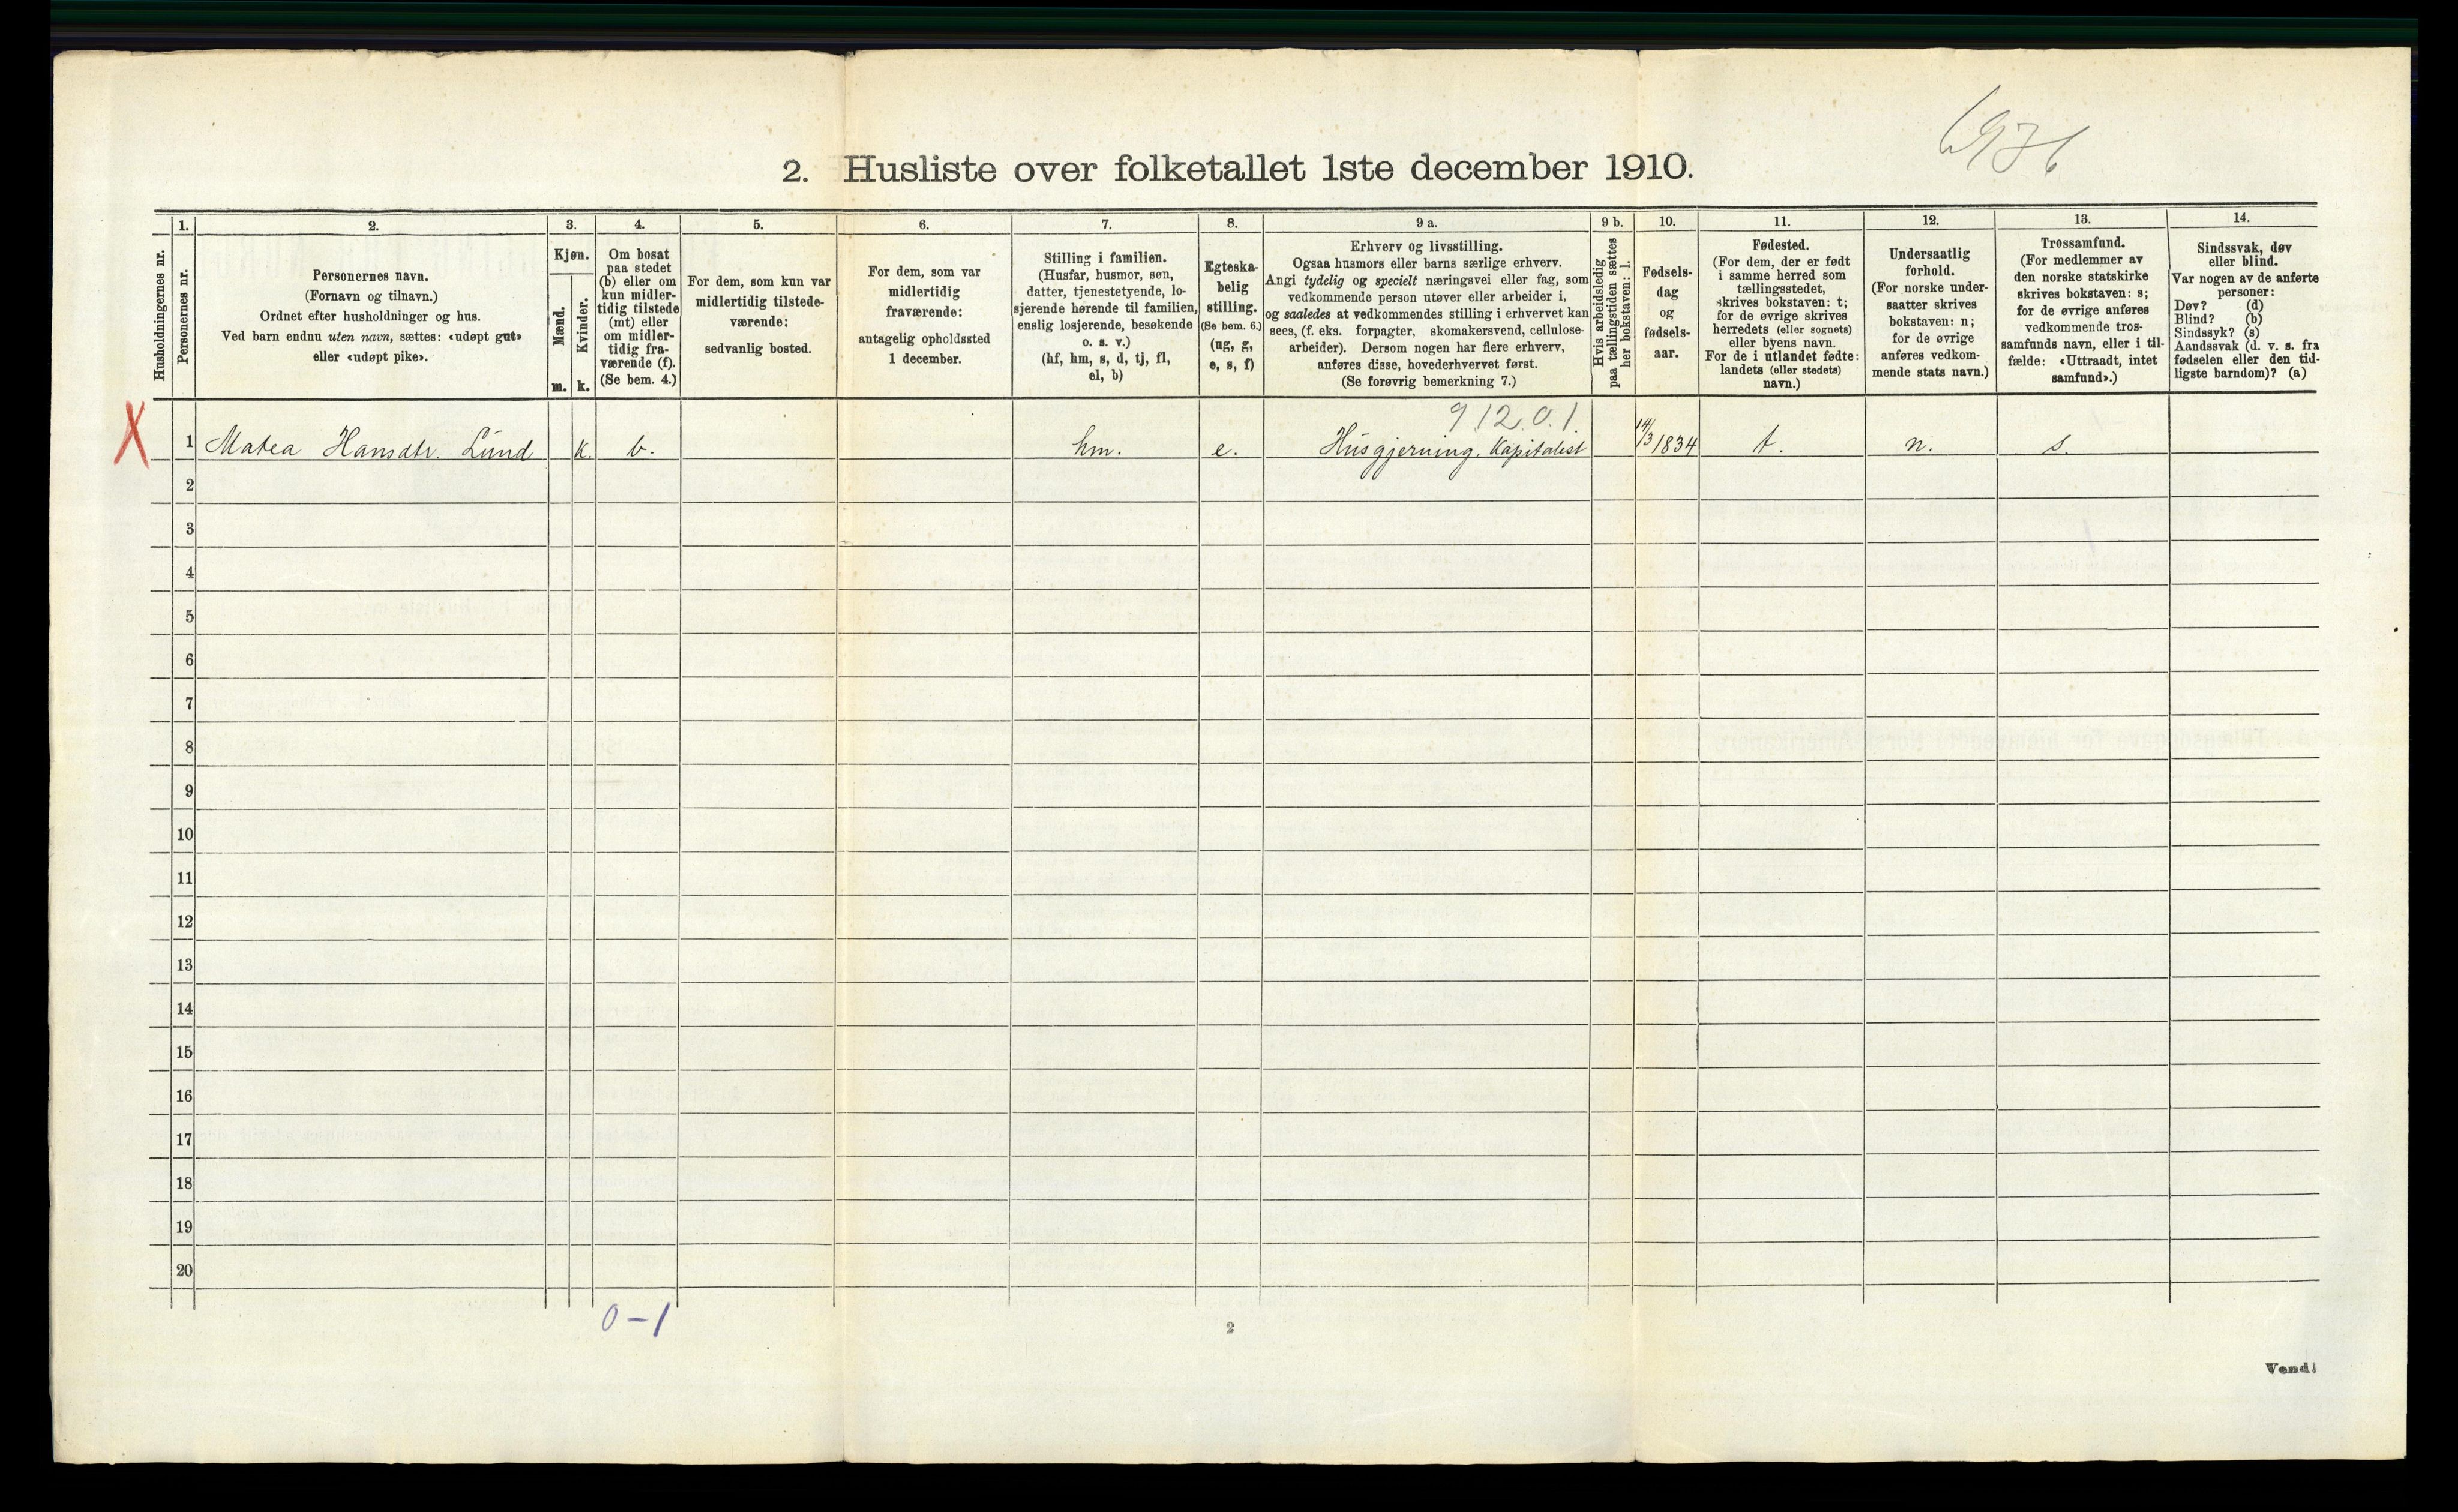 2. Husliste over folketallet 1ste december 1910.
Husholdningernes nr.
1.
Personernes nr.
2.
Personernes navn.
(Fornavn og tilnavn.)
Ordnet efter husholdninger og hus.
Ved barn endnu uten navn, sættes: «udøpt gut»
eller «udøpt pike».
3.
Kjøn.
Mænd.
Kvinder.
m. k.
4.
Om bosat
paa stedet
(b) eller om
kun midler-
tidig tilstede
(mt) eller
om midler-
tidig fra-
værende (f).
(Se bem. 4.)
5.
For dem, som kun var
midlertidig tilstede-
værende:
sedvanlig bosted.
6.
For dem, som var
midlertidig
fraværende:
antagelig opholdssted
1 december.
7.
Stilling i familien.
(Husfar, husmor, søn,
datter, tjenestetyende, lo-
sjerende hørende til familien,
enslig losjerende, besøkende
o. s. v.)
(hf, hm, s, d, tj, fl,
el, b)
8.
Egteska-
belig
stilling.
(Se bem. 6.)
(ug, g,
e, s, f)
9 a.
Erhverv og livsstilling.
Ogsaa husmors eller barns særlige erhverv.
Angi tydelig og specielt næringsvei eller fag, som
vedkommende person utøver eller arbeider i,
og saaledes at vedkommendes stilling i erhvervet kan
sees, (f. eks. forpagter, skomakersvend, cellulose-
arbeider). Dersom nogen har flere erhverv,
anføres disse, hovederhvervet først.
(Se forøvrig bemerkning 7.)
9 b.
Hvis arbeidsledig
paa tællingstiden sættes
her bokstaven: l.
10.
Fødsels-
dag
og
fødsels-
aar.
11.
Fødested.
(For dem, der er født
i samme herred som
tællingsstedet,
skrives bokstaven: t;
for de øvrige skrives
herredets (eller sognets)
eller byens navn.
For de i utlandet fødte:
landets (eller stedets)
navn.)
12.
Undersaatlig
forhold.
(For norske under-
saatter skrives
bokstaven: n;
for de øvrige
anføres vedkom-
mende stats navn.)
13.
Trossamfund.
(For medlemmer av
den norske statskirke
skrives bokstaven: s;
for de øvrige anføres
vedkommende tros-
samfunds navn, eller i til-
fælde: «Uttraadt, intet
samfund».)
14.
Sindssvak, døv
eller blind.
Var nogen av de anførte
personer:
Døv? (d)
Blind? (b)
Sindssyk? (s)
Aandssvak (d. v. s. fra
fødselen eller den tid-
ligste barndom)? (a)
X
912.0.1.
1 Matea Hansdtr. Lund k. b. hm. e. Husgjerning. Kapitalist 14/3 1834 t. n. s.
2
3
4
5
6
7
8
9
10
11
12
13
14
15
16
17
18
19
20
0-1
2
Vend!